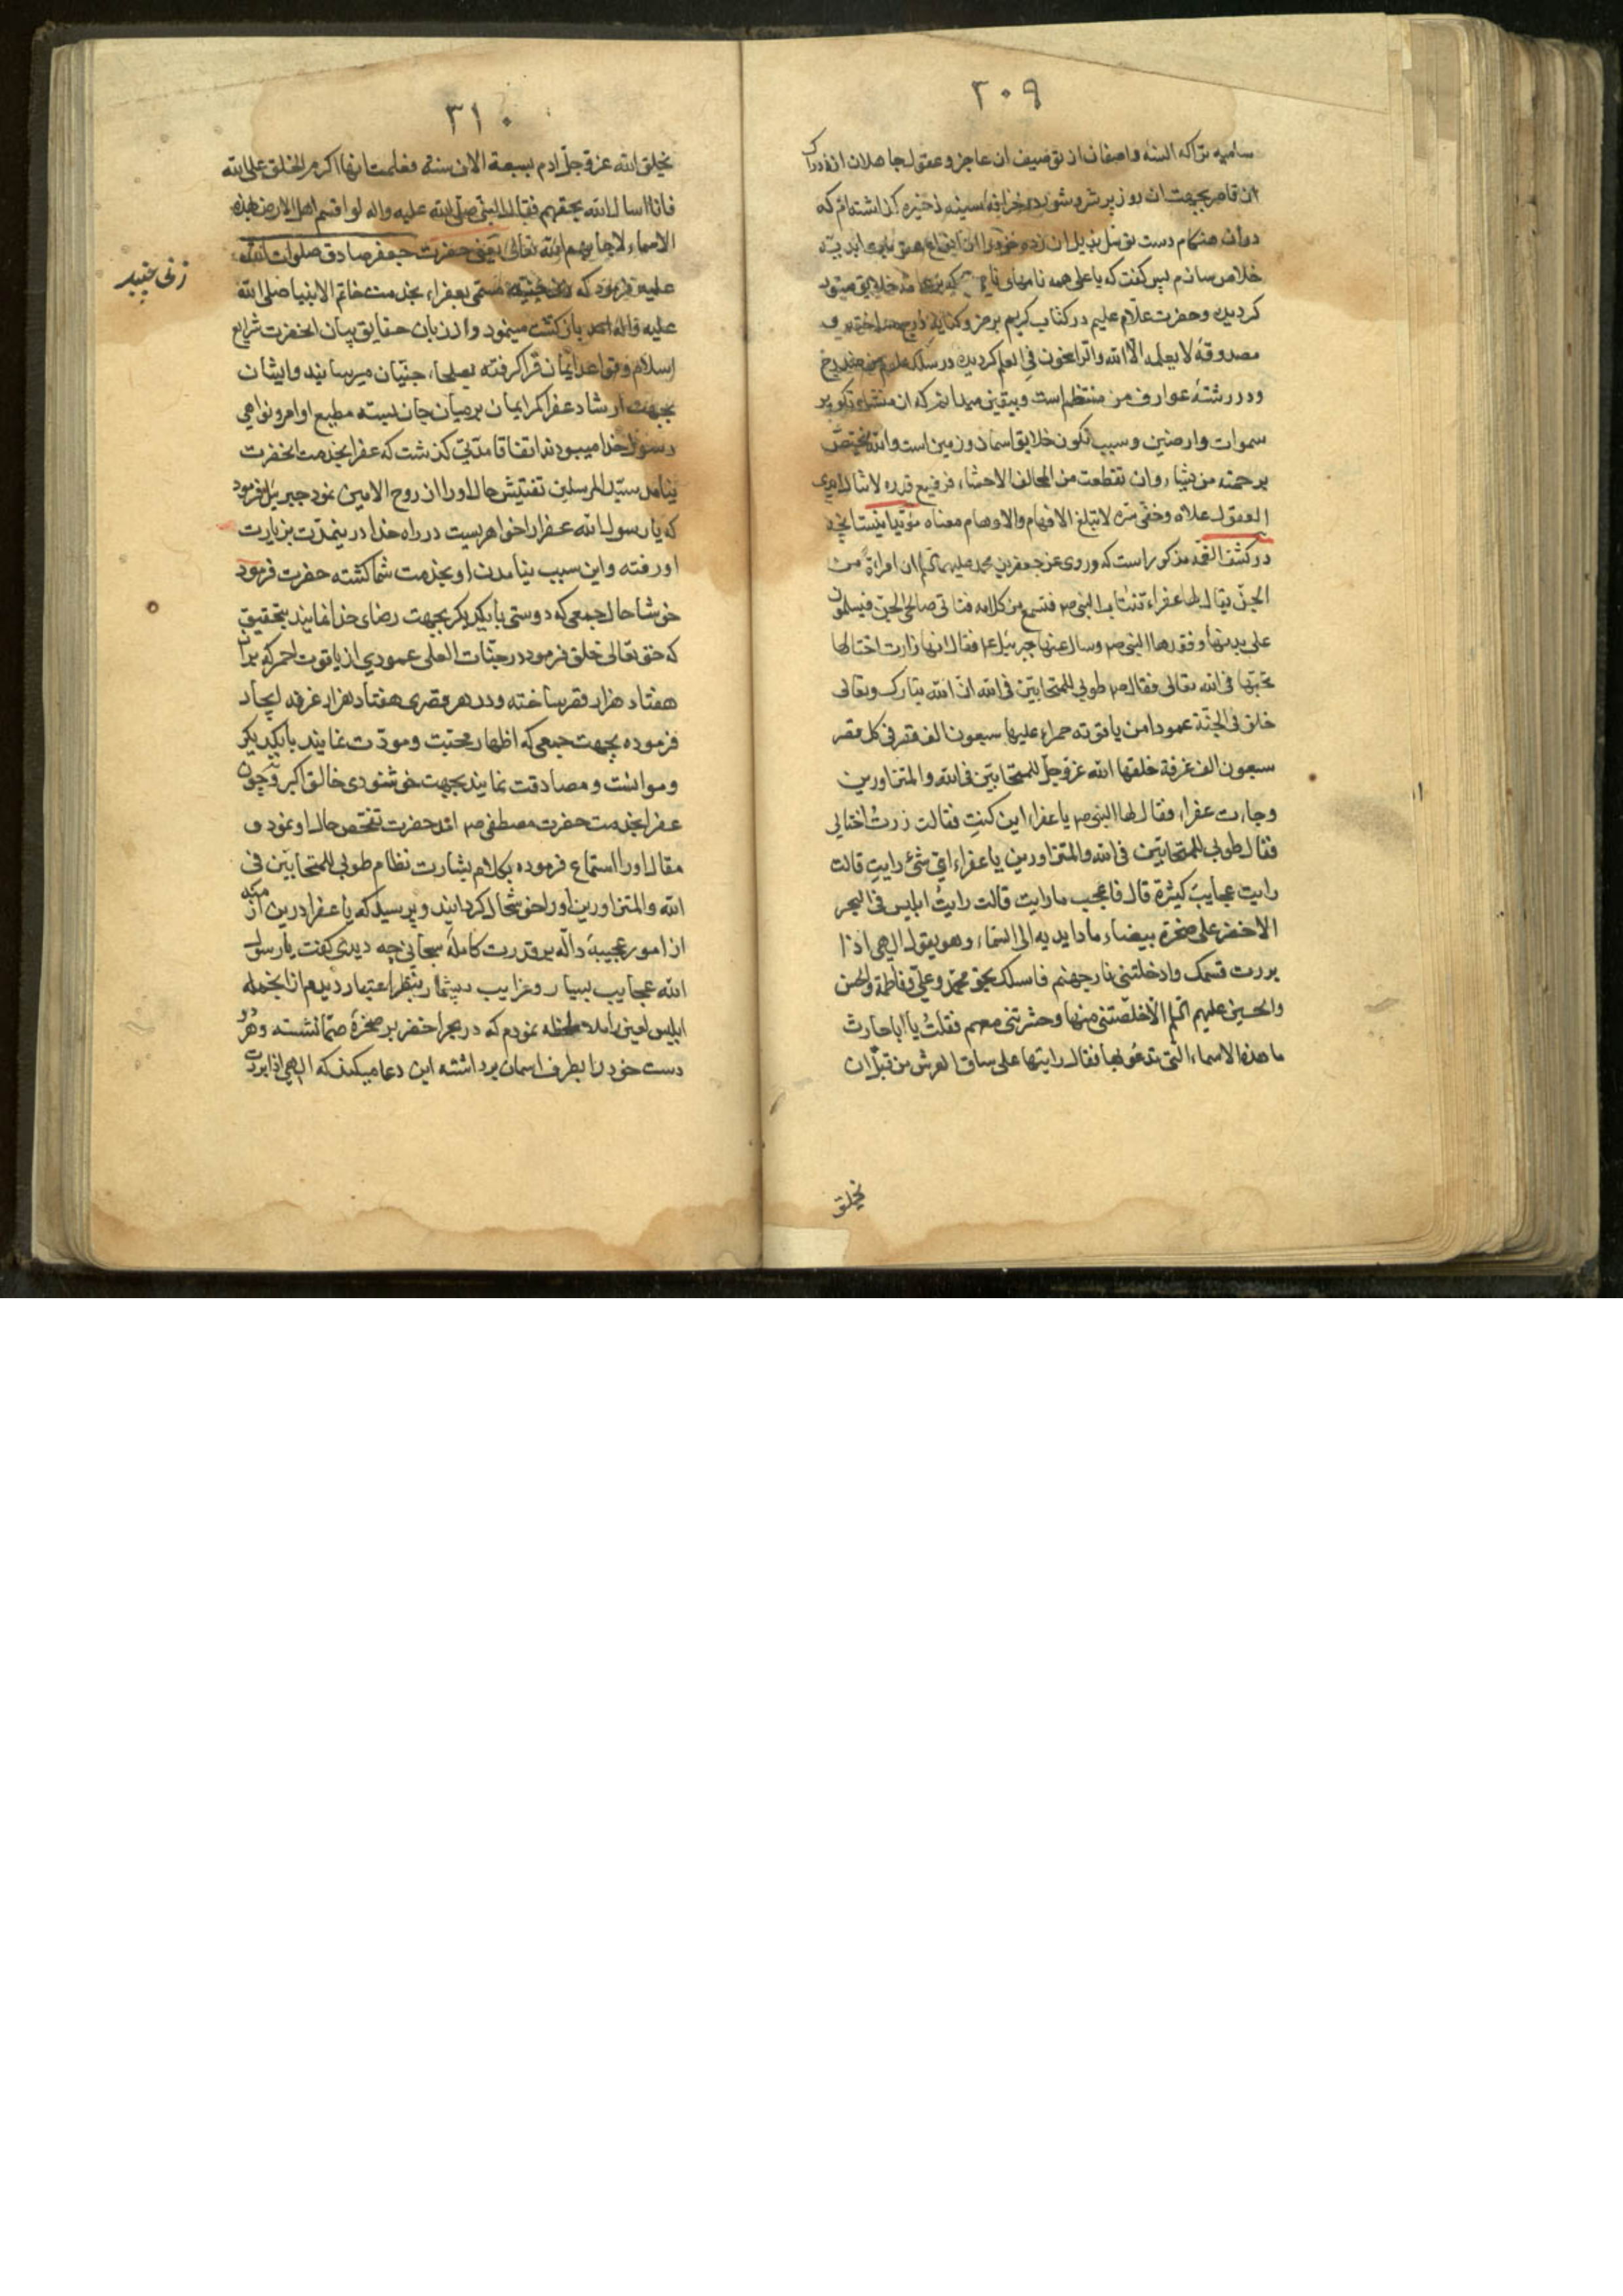 ۳۰۹
سامیه تراکه السنه واصفان از توصیف ان عاجز و عقول جاهلان از ادراک
ان قاصر بجهت ان روز پرشر و شور در خزانهٔ سینه ذخیره گذاشته‌ام که
دران هنکام دست توسل بذیل ان زده خود را از
خلاص سازم پس کفت که یا علی همه نامهای خلایق
کردید و حضرت علام علیم در کتاب کریم برمز و کنایه
مصدوقهٔ لا یعلمه الا الله والراسخون فی العلم کردیده در سلک
و در رشتهٔ عوارف من منتظم است و بیقین میدانم که ان منشاء تکویر
سموات وارضین و سبب تکون خلایق اسمان و زمین است والله یختص
برحمته من یشاء وان تقطعت من المخالف الاحشاء فرفیع قدره لا تناله ایدی
العقول علاه وخفی سره لا تبلغ الافهام والاوهام معناه
در کشف الغمه مذکور است که وروی عن جعفر بن محمد علیهما السلم ان امراة من
الجن یقال لها عفراء تنتاب النبی ص فتسمع من کلامه فتاتی صالح الجن فیسلمون
علی یدیها وفقدها النبی ص وسال عنها جبرئیل ع فقال انها زارت اختا لها
تحبها فی الله تعالی فقال ص طوبی للمتحابین فی الله ان الله تبارک وتعالی
خلق فی الجنة عمودا من یاقوته حمراء علیها سبعون الف قصر فی کل قصر
سبعون الف غرفة خلقها الله عز وجل للمتحابین فی الله والمتزاورین
وجاءت عفراء فقال لها النبی ص یا عفراء این کنت فقالت زرت اختا لی
فقال طوبی للمتحابین فی الله والمتزاورین یا عفراء ای شئ رایت قالت
رایت عجایب کثیرة قال فاعجب ما رایت قالت رایت ابلیس فی البحر
الاخضر علی صخرة بیضاء مادا یدیه الی السماء وهو یقول الهی اذا
بررت قسمک وادخلتنی نار جهنم فاسلک بحق محمد وعلی وفاطمة والحسن
والحسین علیهم السلم الا خلصتنی منها وحشرتنی معهم فقلت یا ابا حارث
ما هذه الاسماء التی تدعو بها فقال رایتها علی ساق العرش من قبل ان
یخلق
۳۱۰
یخلق الله عز وجل ادم بسبعة الاف سنة فعلمت انها اکرم الخلق علی الله
فانا اسال الله بحقهم فقال النبی صلی الله علیه واله لو اقسم اهل الارض بهذه
الاسماء لاجابهم الله تعالی یعنی حضرت جعفر صادق صلوات الله
علیه فرمود که زنی جنیه مسمی بعفراء بخدمت خاتم الانبیا صلی الله
زنی جنیه
علیه واله بازکشت مینمود و از زبان حقایق بیان انحضرت شرایع
اسلام و قواعد ایمان فرا کرفته بصلحاء جنیان میرسانید و ایشان
بجهت ارشاد عفرا کمر ایمان بر میان جان بسته مطیع اوامر و نواهی
رسول خدا میبودند اتفاقا مدتی کذشت که عفرا بخدمت انحضرت
نیامد سید المرسلین تفتیش حال او را از روح الامین نمود جبرئیل فرمود
که یا رسول الله عفرا را خواهریست در راه خدا درینمدت بزیارت
او رفته و این سبب نیامدن او بخدمت شما کشته حضرت فرمود
خوشا حال جمعی که دوستی با یکدیکر بجهت رضای خدا نمایند بتحقیق
که حق تعالی خلق فرموده در جنات العلی عمودی از یاقوت احمر که بران
هفتاد هزار قصر ساخته و در هر قصری هفتاد هزار غرفه ایجاد
فرموده بجهت جمعی که اظهار محبت و مودت نمایند با یکدیکر
و موانست و مصادقت نمایند بجهت خوشنودی خالق اکبر و چون
عفرا بخدمت حضرت مصطفی ص امد حضرت تفحص حال او نمود و
مقال او را استماع فرموده بکلام بشارت نظام طوبی للمتحابین فی
الله والمتزاورین او را خوشحال کردانید و پرسید که یا عفرا درین
از امور عجیبهٔ داله بر قدرت کاملهٔ سبحانی چه دیدی کفت یا رسول
الله عجایب بسیار و غرایب بیشمار بنظر اعتبار دیدم از انجمله
ابلیس لعین را ملاحظه نمودم که در بحر اخضر بر صخرهٔ صما نشسته و هر دو
دست خود را بطرف اسمان برداشته این دعا میکند که الهی اذا بررت